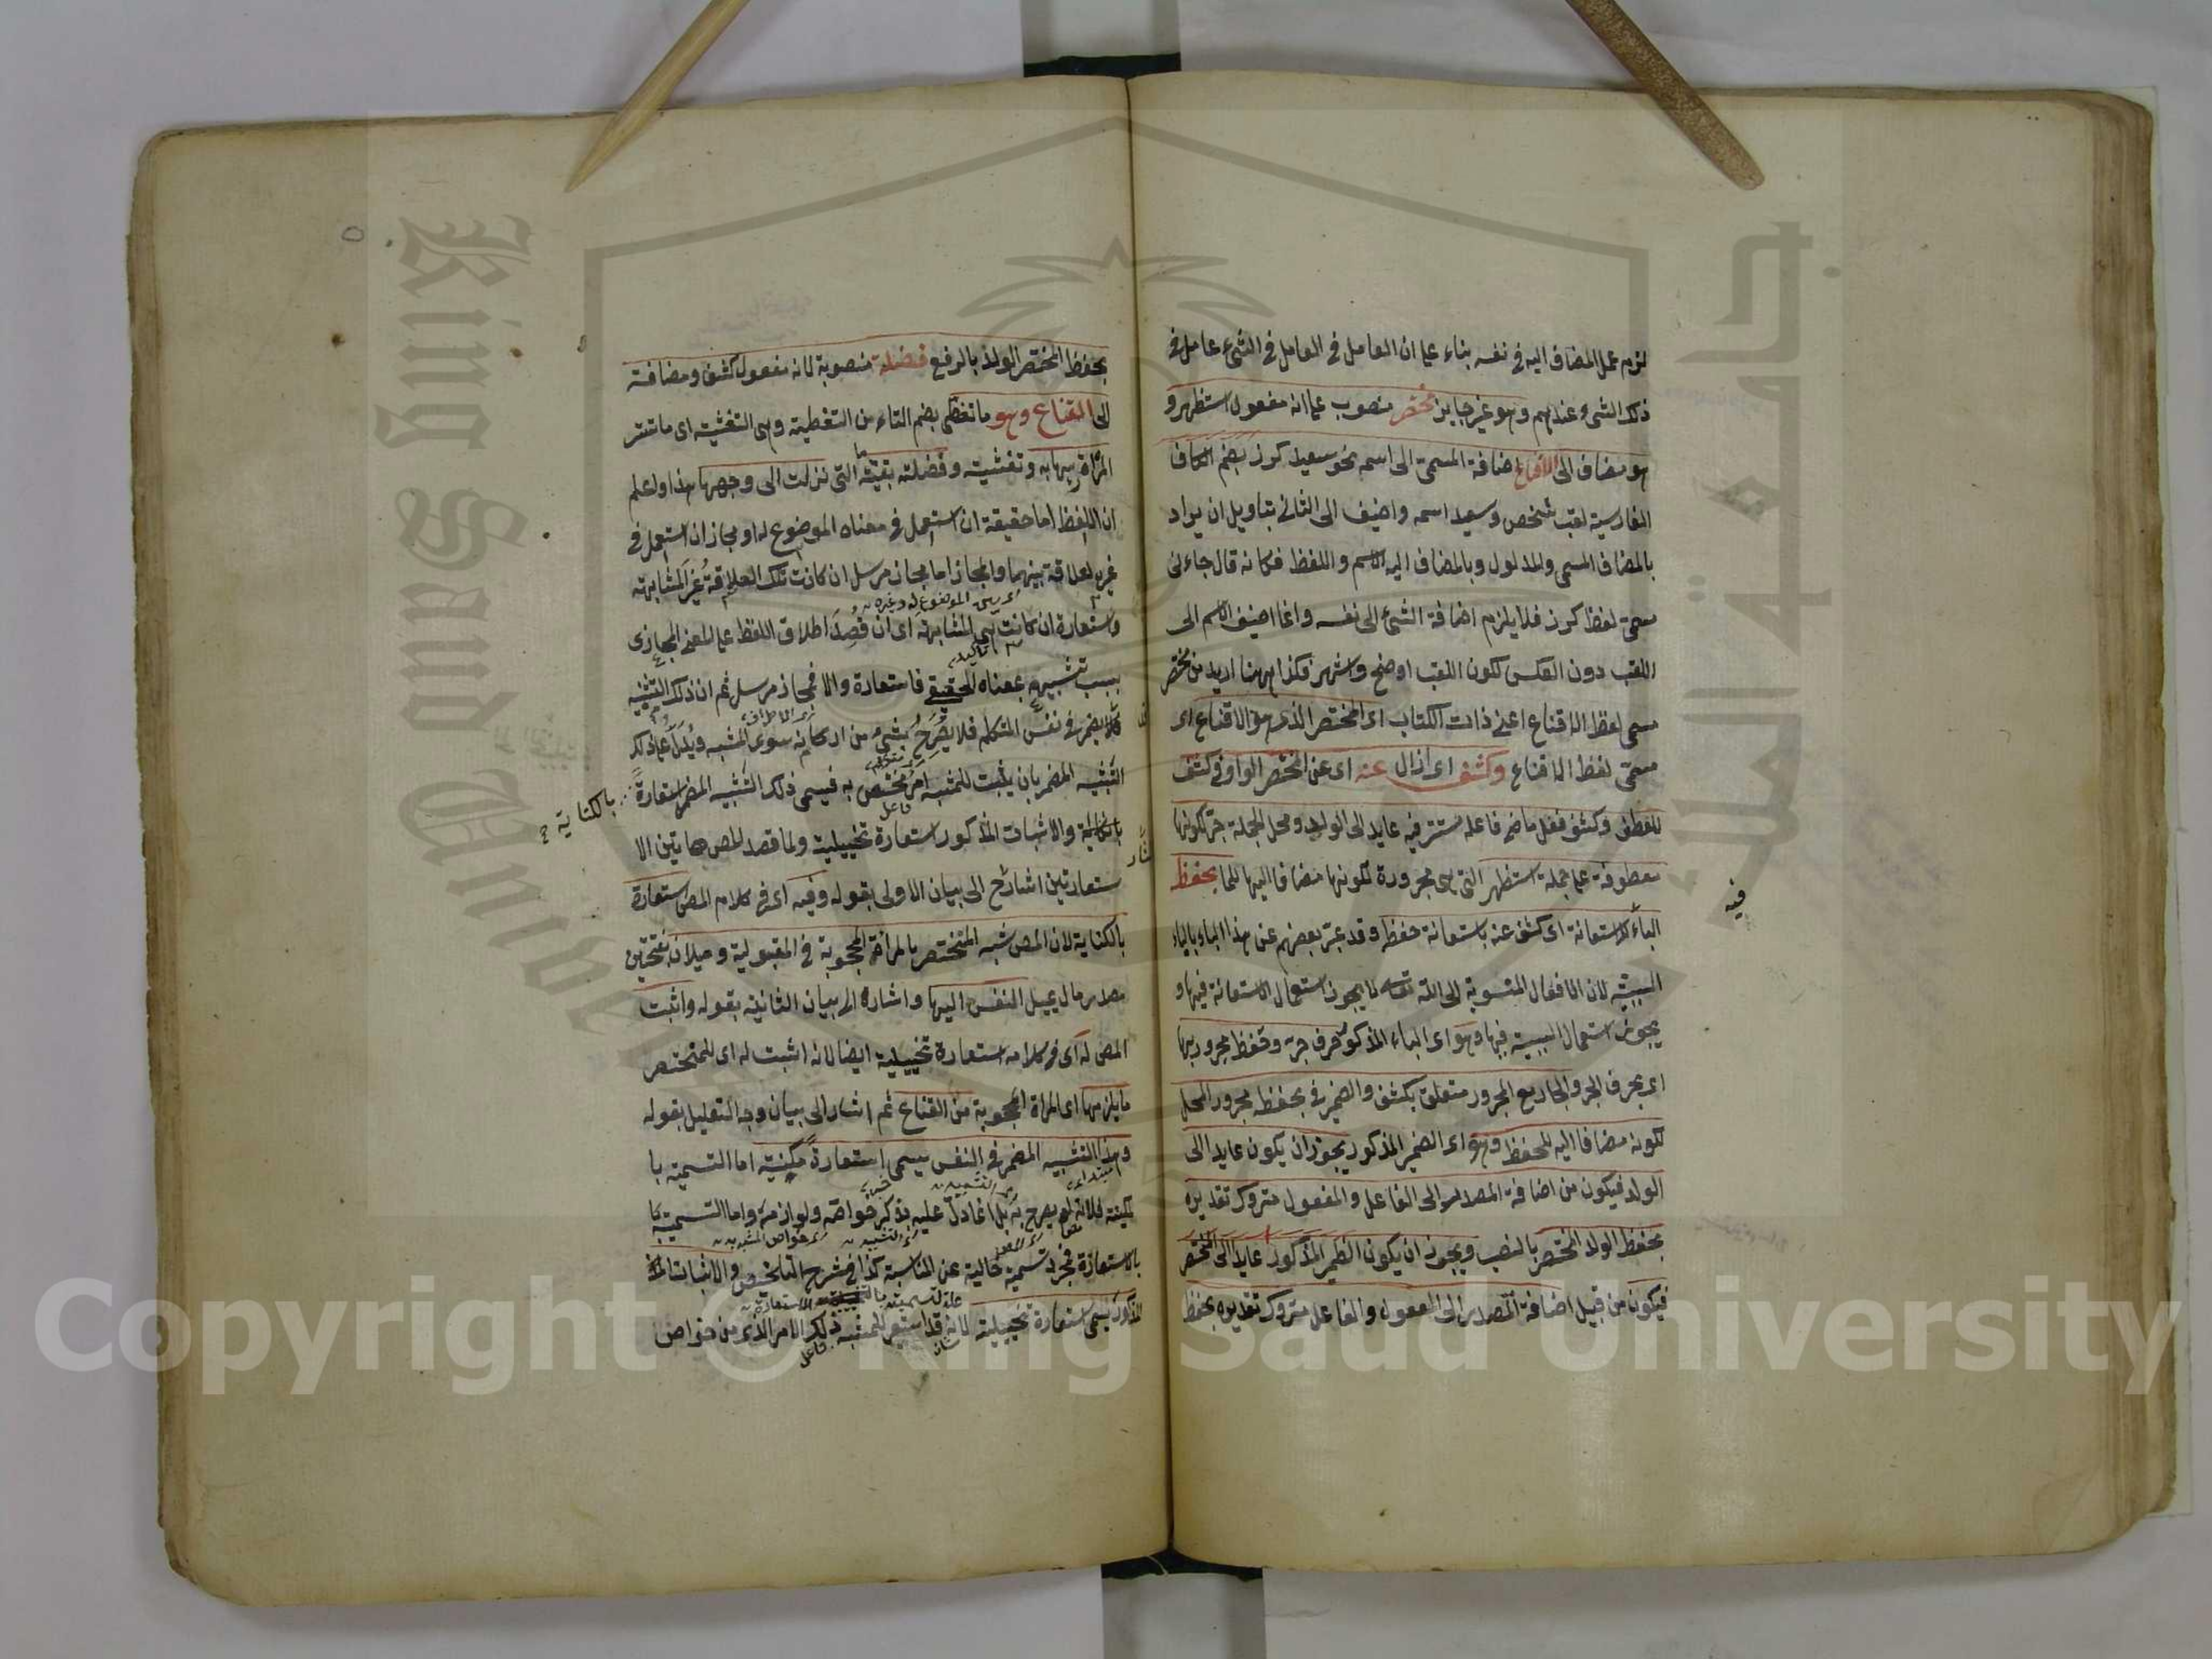 لزم عمل المضاف اليه فى نفسه بناء على ان العامل فى العامل فى الشئ عامل فى
ذلك الشئ عندهم وهو غير جايز مختصر منصوب على انه مفعول استظهر و
هو مضاف الى الاقناع اضافة المسمى الى اسمه نحو سعيد كرز بضم الكاف
الفارسية لقب شخص وسعيد اسمه واضيف الى الثانى بتاويل ان يراد
بالمضاف المسمى والمدلول وبالمضاف اليه الاسم واللفظ فكانه قال جاءنى
مسمى لفظ كرز فلا يلزم اضافة الشئ الى نفسه وانما اضيف الاسم الى
اللقب دون العكس لكون اللقب اوضح واشهر فكذا ههنا اريد من مختصر
مسمى لفظ الاقناع اعنى ذات الكتاب اى المختصر الذى هو الاقناع اى
مسمى لفظ الاقناع وكشف اى ازال عنه اى عن المختصر الواو فى كشف
للعطف وكشف فعل ماض فاعله مستتر فيه عايد الى الولد ومحل الجملة جر لكونها
معطوفة على جملة استظهر التى هى مجرورة لكونها مضافا اليها للما بحفظه
فيه
الباء للاستعانة اى كشف عنه باستعانة حفظه وقد عبر بعضهم عن هذا الباء بالباء
السببية لان الافعال المنسوبة الى الله تعالى لا يجوز استعمال الاستعانة فيها و
يجوز استعمال السببية فيها وهو اى الباء المذكور حرف جر وحفظ مجرور بها
اى بحرف الجر والجار مع المجرور متعلق بكشف والضمير فى بحفظه مجرور المحل
لكونه مضافا اليه للحفظ وهو اى الضمير المذكور يجوز ان يكون عايدا الى
الولد فيكون من اضافة المصدر الى الفاعل والمفعول متروك تقديره
بحفظ الولد المختصر بالنصب ويجوز ان يكون الضمير المذكور عايدا الى المختصر
فيكون من قبيل اضافة المصدر الى المفعول والفاعل متروك تقديره بحفظ
بحفظ المختصر الولد بالرفع فضلة منصوبة لانه مفعول كشف ومضافة
الى القناع وهو ما تغطى بضم التاء من التغطية وهى التغشية اى ما تستر
المرأة به وتغشيه وفضلته بقيته التى نزلت الى وجهها هذا واعلم
ان اللفظ اما حقيقة ان استعمل فى معناه الموضوع له او مجاز ان استعمل فى
غيره لعلاقة بينهما والمجاز اما مجاز مرسل ان كانت تلك العلاقة غير المشابهة
واستعارة ان كانت هى المشابهة اى ان قصد اطلاق اللفظ على المعنى المجازى
بسبب تشبيهه بمعناه الحقيقى فاستعارة والا فمجاز مرسل ثم ان ذلك التشبيه
يضمر فى نفس المتكلم فلا يصرح بشئ من اركانه سوى المشبه ويدل على ذلك
التشبيه المضمر بان يثبت للمشبه امر مختص به فيسمى ذلك التشبيه المضمر استعارة
بالكناية
بالكناية والاثبات المذكور استعارة تخييلية ولما قصد المص هاتين الا
ستعارتين اشار الى بيان الاولى بقوله وفيه اى فى كلام المص استعارة
بالكناية لان المص شبه المختصر بالمرأة المحجوبة فى المقبولية وميلان بفتحتين
مصدر مال يميل النفس اليها واشار الى بيان الثانية بقوله واثبت
المص له اى فى كلامه استعارة تخييلية ايضا لانه اثبت له اى للمختصر
ما يلزمها اى المرأة المحجوبة من القناع ثم اشار الى بيان وجه التعليل بقوله
وهذا التشبيه المضمر فى النفس يسمى استعارة مكنية اما التسمية با
لمكنية فلانه لم يصرح به بل انما دل عليه بذكر خواصه ولوازمه واما التسمية
بالاستعارة فمجرد تسمية خالية عن المناسبة كذا فى شرح التلخيص والاثبات
المذكور يسمى استعارة تخييلية لانه قد استعير للمشبه ذلك الامر الذى من خواص